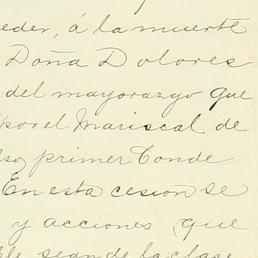 eder, á la muerte
Doña Dolores
del mayorazgo que
por el Mariscal de
so, primer Conde
En esta cesion se
y acciones, que
le sean de la clase